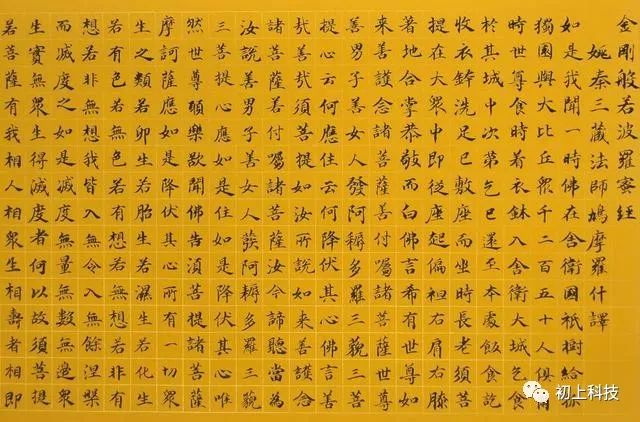 金剛般若波羅蜜經
姚秦三藏法師鳩摩羅什譯
如是我聞一時佛在舍衛國祇樹給孤
獨園與大比丘眾千二百五十人俱
時世尊食時着衣鉢入舍衛大城乞食
於其城中次第乞已還至本處飯食訖
收衣鉢洗足已敷座而坐時長老須菩
提在大眾中即從座起偏袒右肩右膝
著地合掌恭敬而白佛言希有世尊如
來善護念諸菩薩善付囑諸菩薩世尊
善男子善女人發阿耨多羅三藐三菩
提心云何應住云何降伏其心佛言善
哉善哉須菩提如汝所說如來善護念
諸菩薩善付囑諸菩薩汝今諦聽當為
汝說善男子善女人發阿耨多羅三藐
三菩提心應如是住如是降伏其心唯
然世尊願樂欲聞佛告須菩提諸菩薩
摩訶薩應如是降伏其心所有一切眾
生之類若卵生若胎生若濕生若化生
若有色若無色若有想若無想若非有
想若非無想我皆入無令入無餘涅槃
而滅度之如是滅度無量無數無邊眾
生實無眾生得滅度者何以故須菩提
若菩薩有我相人相眾生相壽者相即
初上科技